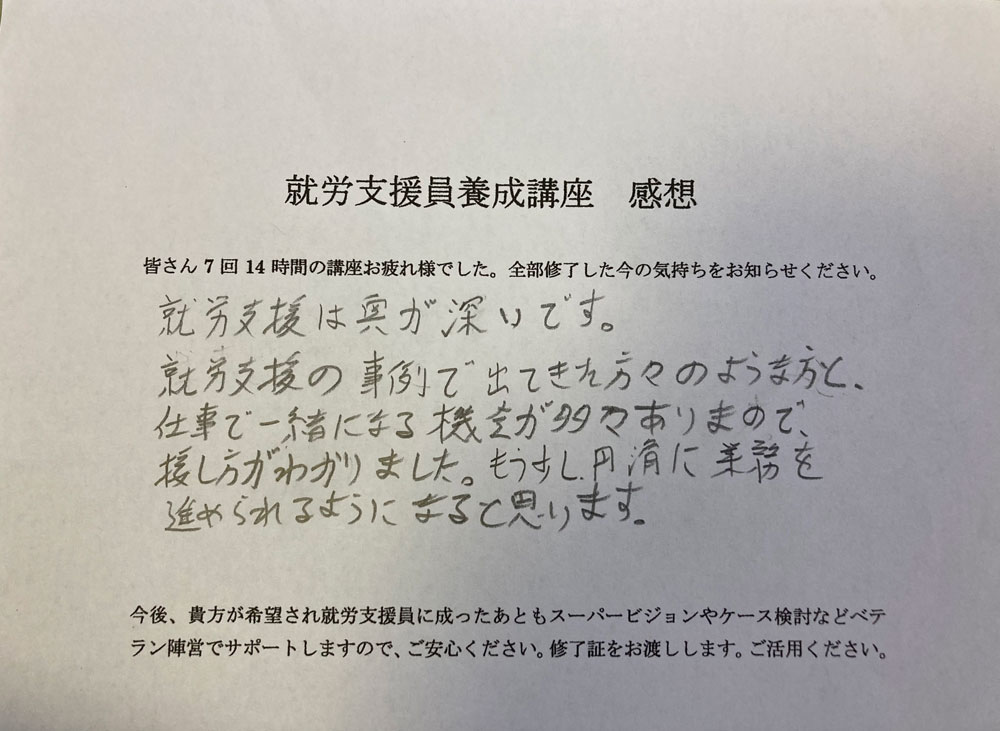 就労支援員養成講座　感想
皆さん 7 回 14 時間の講座お疲れ様でした。全部修了した今の気持ちをお知らせください。
就労支援は奥が深いです。
就労支援の事例で出てきた方々のような方と、
仕事で一緒になる機会が多々ありまので、
援し方がわかりました。もう少し円滑に業務を
進められるようになると思います。
今後、貴方が希望され就労支援員に成ったあともスーパービジョンやケース検討などベテ
ラン陣営でサポートしますので、ご安心ください。修了証をお渡しします。ご活用ください。